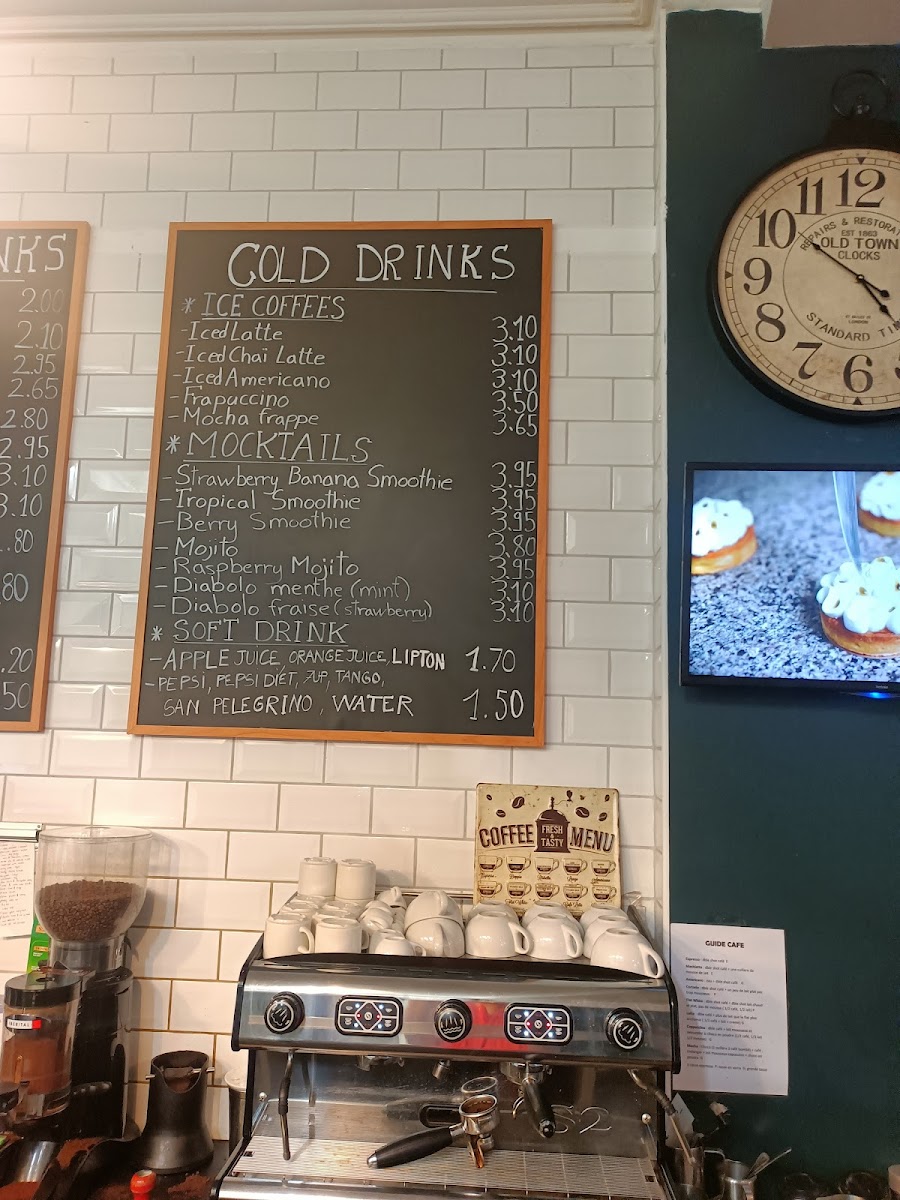 NKS
2.00
2.10
2.95
2.65
2.80
2.95
3.10
3.10
.80
80
.20
50
COLD DRINKS
* ICE COFFEES
- Iced Latte 3.10
- Iced Chai Latte 3.10
- Iced Americano 3.10
- Frapuccino 3.50
- Mocha frappe 3.65
* MOCKTAILS
- Strawberry Banana Smoothie 3.95
- Tropical Smoothie 3.95
- Berry Smoothie 3.95
- Mojito 3.80
- Raspberry Mojito 3.95
- Diabolo menthe (mint) 3.10
- Diabolo fraise (strawberry) 3.10
* SOFT DRINK
- APPLE JUICE, ORANGE JUICE, LIPTON 1.70
- PEPSI, PEPSI DIET, 7UP, TANGO,
SAN PELEGRINO, WATER 1.50
12
11
10
9
8
7
6
REPAIRS & RESTORA
EST 1863
OLD TOWN
CLOCKS
LONDON
STANDARD TIM
COFFEE FRESH & TASTY MENU
GUIDE CAFE
S2